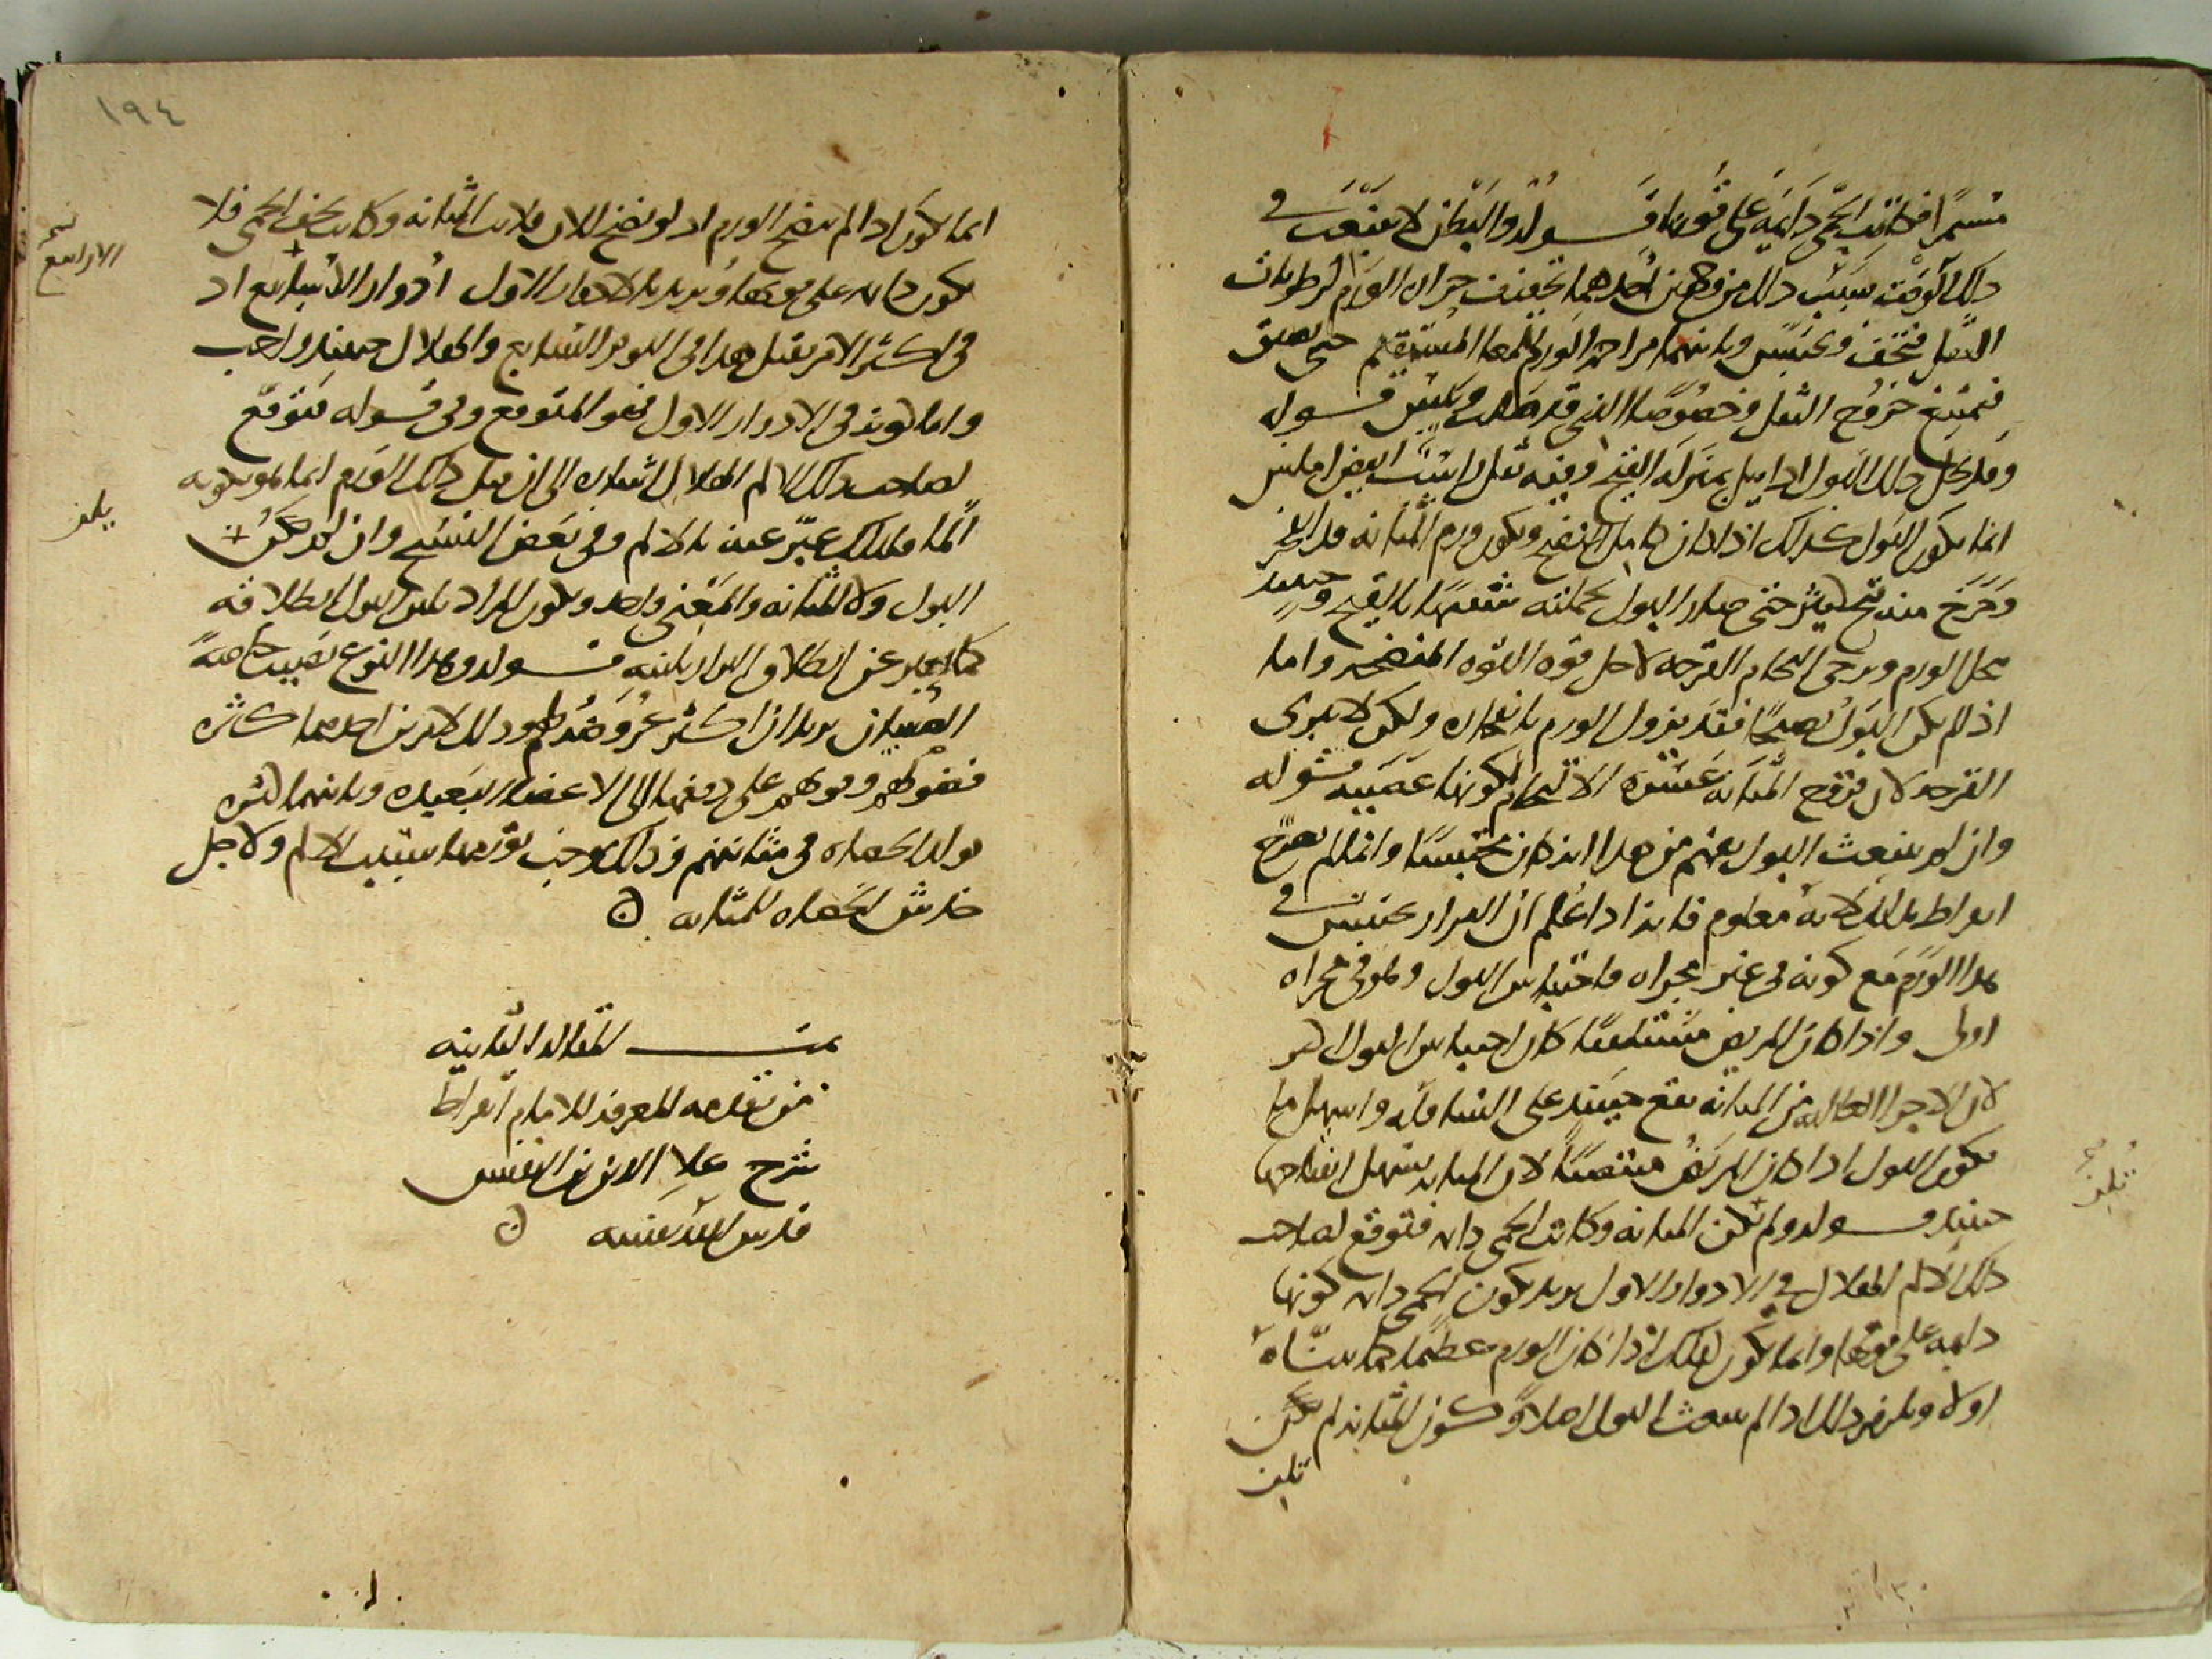 مستمرا فكانت الحمى دائمة على قوتها قـــوله والبطن لا ينبعث في
ذلك الوقت سبب ذلك من وجهين احدهما تجفيف حرارة الورم لرطوبات
الثفل فتجف ويحتبس وثانيهما مزاحمة الورم للمعا المستقيم حتى يضيق
فيمتنع خروج الثفل وخصوصا الذي قد صلب ويبس قـــوله
وقد يحل ذلك البول اذا بيل بمنزلة القيح وفيه ثفل راسب ابيض املس
انما يكون البول كذلك اذا كان كامل النضج ويكون ورم المثانة قد انفجر
وخرج منه قيح كثير حتى صار البول بجملته شبيها بالقيح وحينئذ
يحل الورم ويرجى التحام القرحة لاجل قوة القوة المنضجة واما
اذا لم يكن البول نضيجا فقد يزول الورم بانفجاره ولكن لا تبرى
القرحة لان قروح المثانة عسرة الالتحام لكونها عصبية قوله
وان لم ينبعث البول يفهم من هذا انه كان محتبسا وانما لم يصرح
ابقراط بذلك لانه معلوم فانه اذا علم ان البراز يحتبس في
هذا الورم مع كونه في غير مجراه فاحتباس البول وهو في مجراه
اولى واذا كان المريض مستلقيا كان احتباس البول اكثر
لان الاجزا العالية من المثانة تقع حينئذ على السافلة واسهل ما
يكون البول اذا كان المريض منتصبا لان المثانة يسهل انفتاحها
حينئذ قـــوله ولم تلن المثانة وكانت الحمى دائمة فتوقع لصاحب
ذلك الالم الهلاك في الادوار الاول يريد بكون الحمى دائمة كونها
دائمة على قوتها وانما يكون ذلك اذا كان الورم عظيما كما بيناه
اولا ويلزم ذلك اذا لم ينبعث البول اصلا وكون المثانة لم تلن
تلين
تلين
١٩٤
انما يكون اذا لم ينضج الورم اذ لو نضج للان ولانت المثانة وكانت تخف الحمى فلا
تكون دائمة على قوتها ويريد بالادوار الاول ادوار الاسابيع اذ
في اكثر الامر يقتل هذا في اليوم السابع والهلاك حينئذ واجب
واما كونه في الادوار الاول فهو المتوقع وفي قـــوله فتوقع
لصاحب ذلك الالم الهلاك اشارة الى ان قتل ذلك الورم انما هو بكونه
الما فلذلك عبر عنه بالالم وفي بعض النسخ وان لم يكن
البول ولا المثانة والمعنى واحد ويكون المراد بلين البول انطلاقه
كما يعبر عن انطلاق البراز بلينه قـــوله وهذا النوع يصيب خاصة
الصبيان يريد ان اكثر عروضه لهم وذلك لامرين احدهما كثرة
فضولهم وقوتهم على دفعها الى الاعضا البعيدة وثانيهما كثرة
تولد الحصاة في مثانتهم وذلك يوجب تورمها بسبب الالم ولاجل
خدش الحصاة للمثانة
تمـــت المقالة الثانية
من تقدمة المعرفة للامام ابقراط
شرح علا الدين بن النفيس
قدس الله نفسه
الاسابيع
يلن